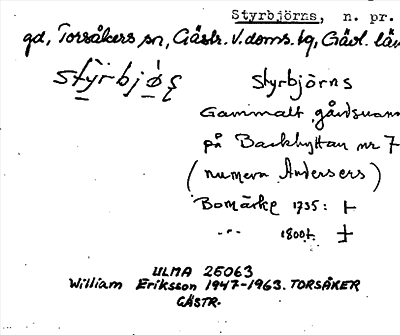 Styrbjörns, n. pr.
gd, Torsåkers sn, Gästr. V. doms. tg, Gävl. län
Styrbjörns
Gammalt gårdsnamn
på Backhyttan nr 7
(numera Andersers)
Bomärke 1735:
-"- 1800t.
ULMA 25063
William Eriksson 1947-1963. TORSÅKER
GÄSTR.